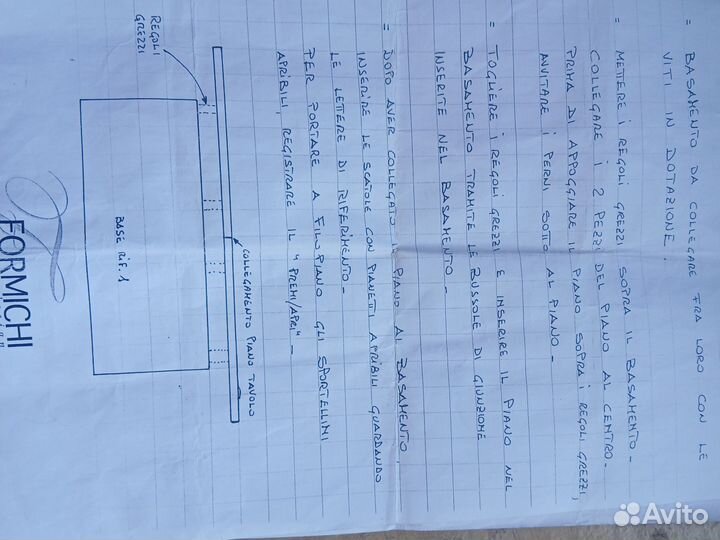 = BASAMENTO DA COLLEGARE FRA LORO CON LE
VITI IN DOTAZIONE.
= METTERE I REGOLI GREZZI SOPRA IL BASAMENTO -
COLLEGARE I 2 PEZZI DEL PIANO AL CENTRO -
PRIMA DI APPOGGIARE IL PIANO SOPRA I REGOLI GREZZI,
AVVITARE I PERNI SOTTO AL PIANO -
= TOGLIERE I REGOLI GREZZI E INSERIRE IL PIANO NEL
BASAMENTO TRAMITE LE BUSSOLE DI GIUNZIONE
INSERITE NEL BASAMENTO -
= DOPO AVER COLLEGATO IL PIANO AL BASAMENTO,
INSERIRE LE SCATOLE CON PIANETTI APRIBILI GUARDANDO
LE LETTERE DI RIFERIMENTO -
PER PORTARE A FILO PIANO GLI SPORTELLINI
APRIBILI, REGISTRARE IL "PREMI/APRI" -
REGOLI
GREZZI
COLLEGAMENTO PIANO TAVOLO
BASE RIF. 1
FORMICHI
Avito